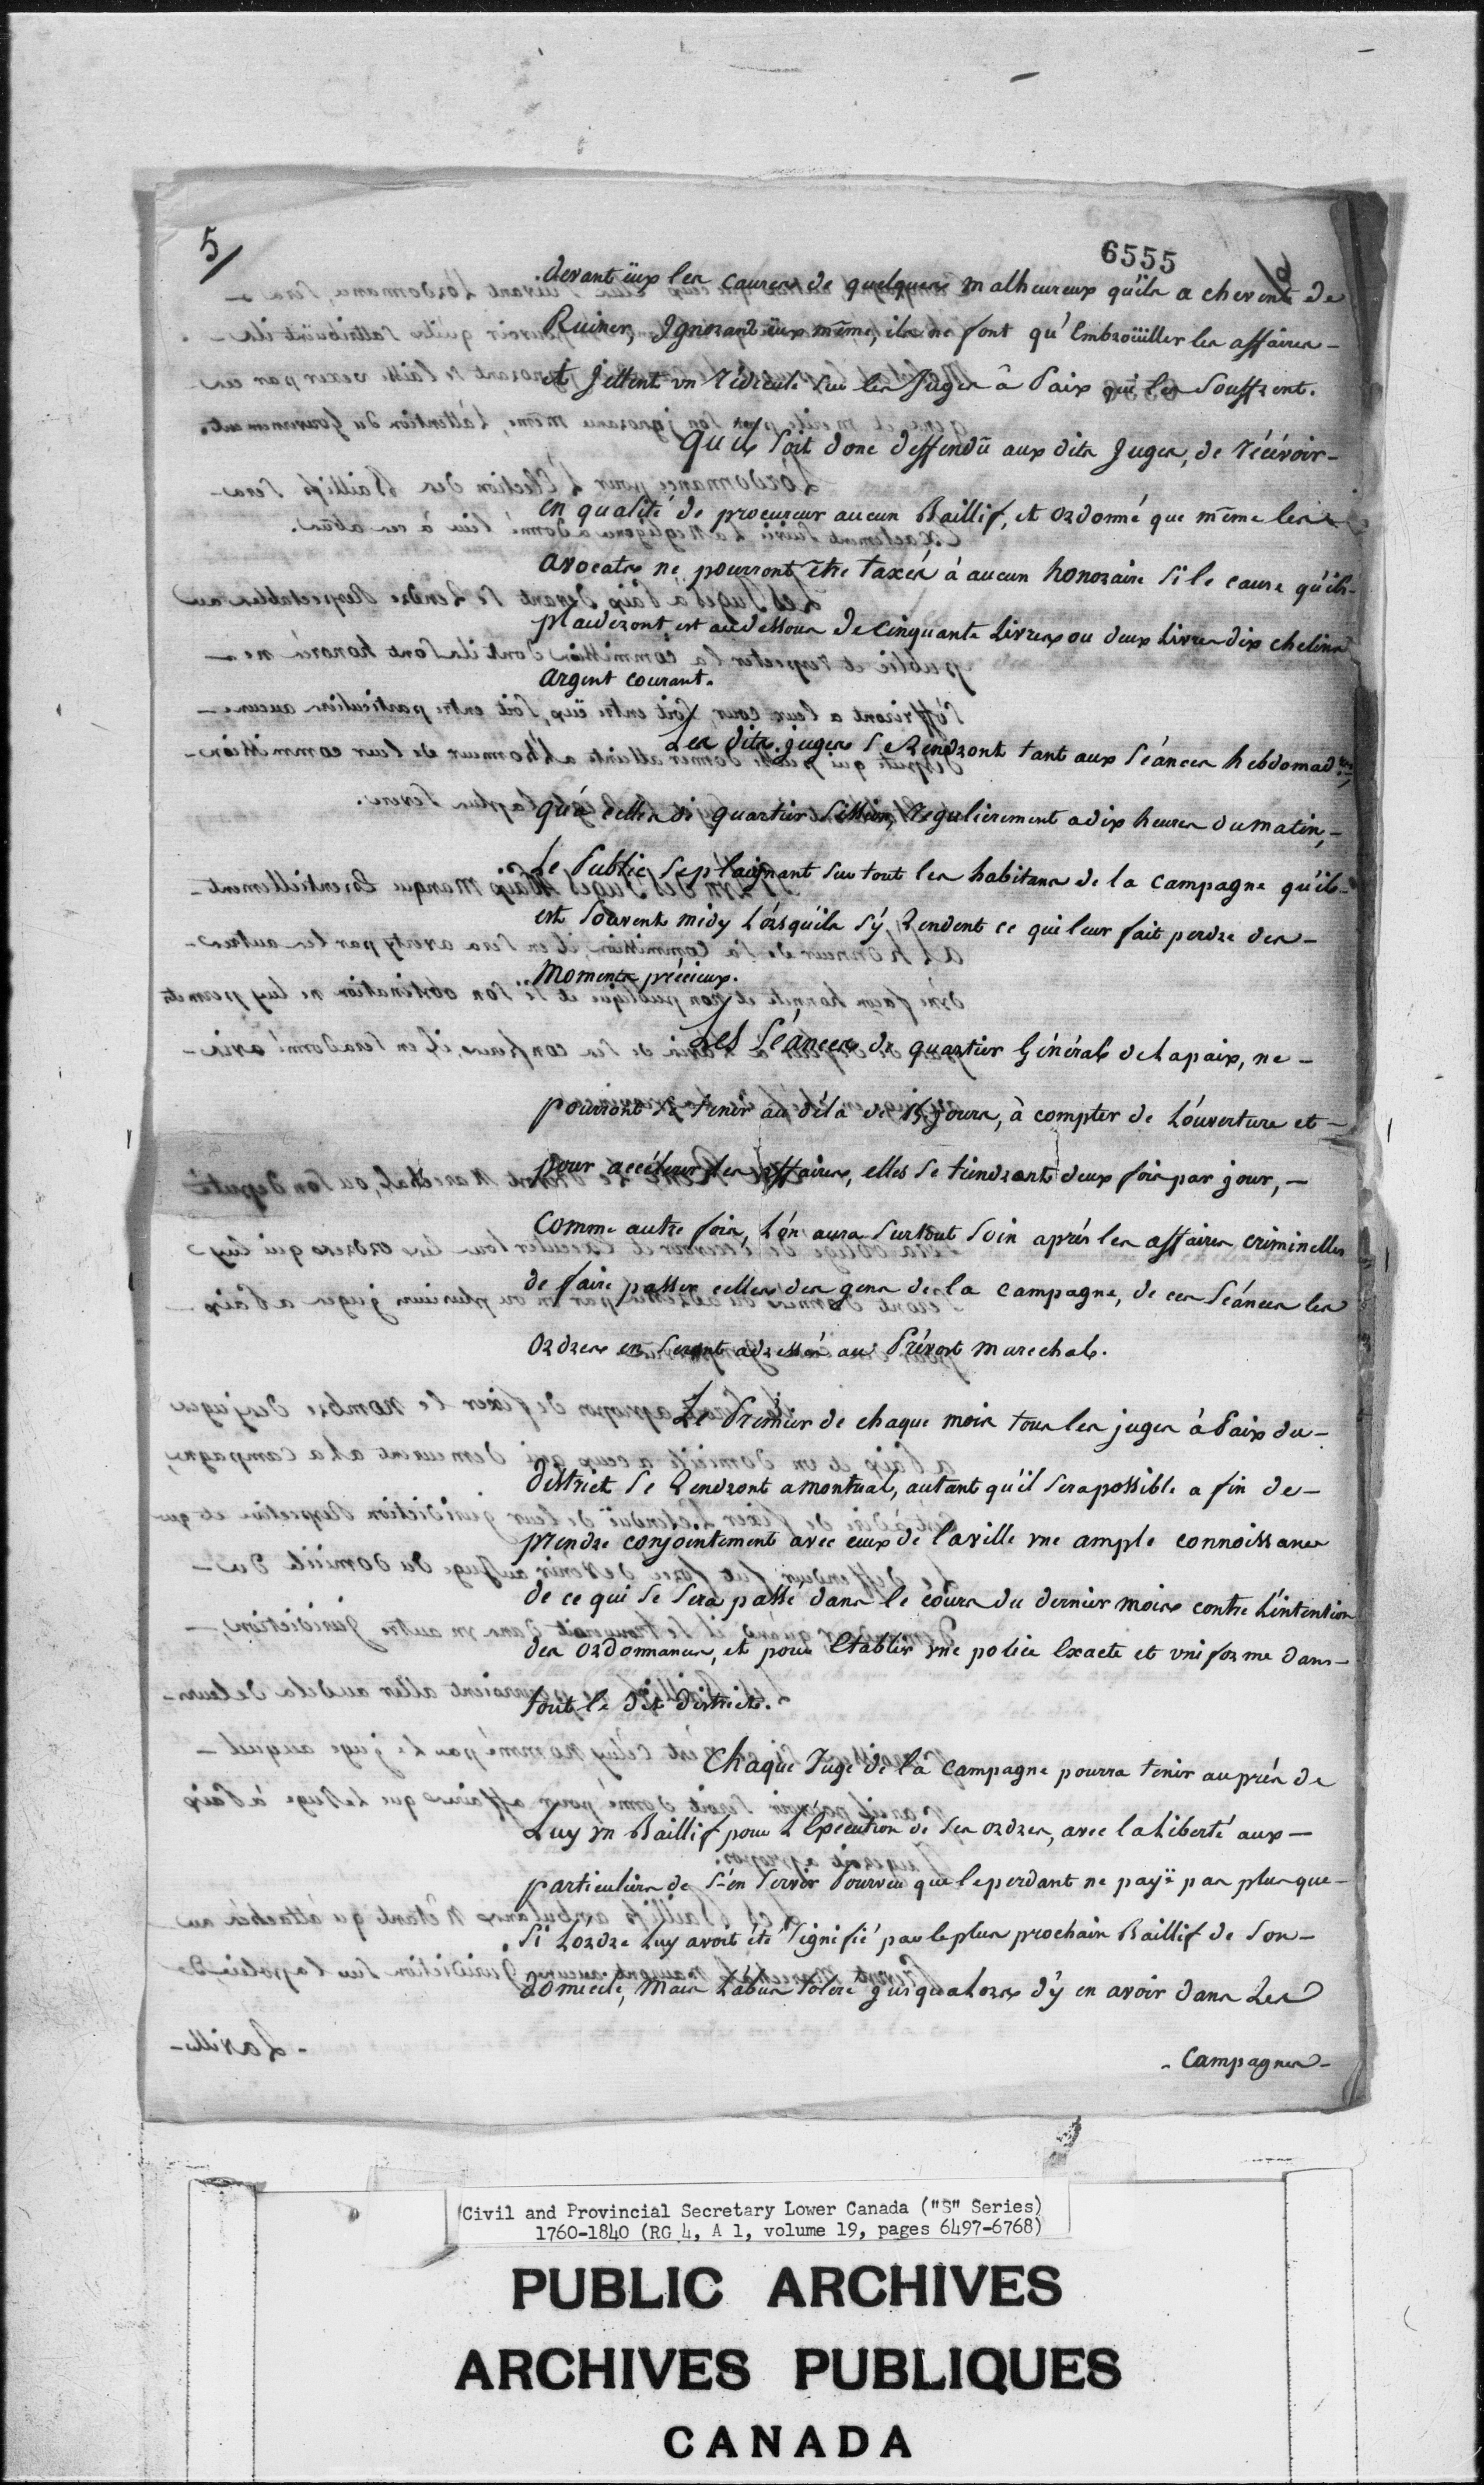 5/
6555
devant eüx les causes de quelques malheureux qu'ils achevent de
Ruiner, Ignorant eüx même, ils ne font qu'Embroüiller les affaires –
et Jettent un ridicule sur les Juges à Paix qui les Souffrent.
Qu'il soit donc deffendû aux dits Juges, de récévoir –
en qualité de procureur aucun Baillif, et ordonné que même les
avocats ne pourront être taxés à aucun honoraire si le cause qu'ils
plaideront est audessous de cinquante Livres ou deux Livres dix chelins
argent courant.
Les dits juges se Rendront tant aux séances hebdomad.res
qu'à celles de quartier session, regulierement a dix heures du matin, –
Le Public se plaignant sur tout les habitans de la campagne qu'il
est souvent midy Lorsqu'ils s'y Rendent ce qui leur fait perdre des –
Moments précieux.
Les Séances de quartier Général de la paix, ne –
pourront se tenir au déla de 15 jours, à compter de L'ouverture et –
pour accélerer les affaires, elles se tiendront deux fois par jour, –
comme autre fois, L'on aura surtout soin aprés les affaires criminelles
de faire passer celles des gens de la campagne, de ces séances les
ordres en seront adressés au Prévost marechal.
Le Premier de chaque mois tous les juges à Paix du –
district se Rendront a montreal, autant qu'il sera possible a fin de –
prendre conjointement avec ceux de la ville une ample connoissance
de ce qui se sera passé dans le cours du dernier mois contre L'intention
des ordonnances, et pour Etablir une police Exacte et uniforme dans –
tout le dit district.
Chaque Juge de la campagne pourra tenir auprés de
Luy un Baillif pour L'Execution de ses ordres, avec la Liberté aux –
particuliers de s'en servir Pourveu que le perdant ne payë pas plus que –
Si Lordre Luy avoit été signifié par le plus prochain Baillif de son –
domicile, Mais L'abus toléré jusqualors d'y en avoir dans Les
- campagnes -
Civil and Provincial Secretary Lower Canada ("S" Series)
1760-1840 (RG 4, A 1, volume 19, pages 6497-6768)
PUBLIC ARCHIVES
ARCHIVES PUBLIQUES
CANADA